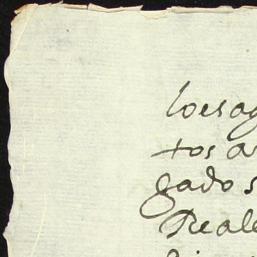 loesag
tos a
gado s
Reale